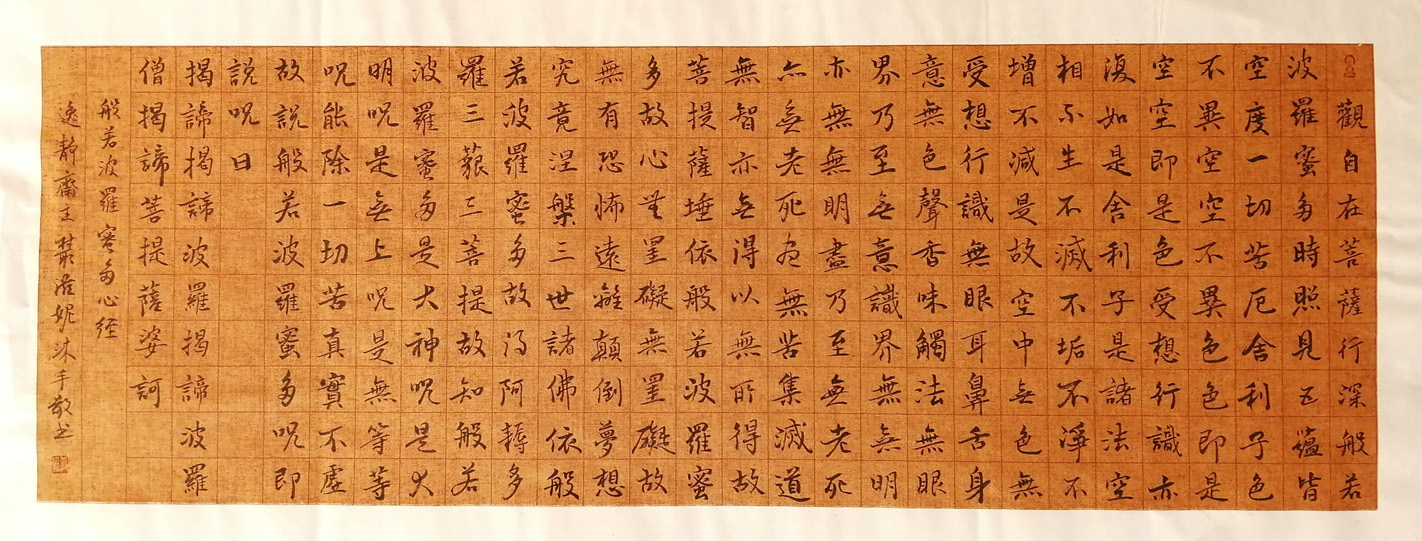 觀自在菩薩行深般若
波羅蜜多時照見五蘊皆
空度一切苦厄舍利子色
不異空空不異色色即是
空空即是色受想行識亦
復如是舍利子是諸法空
相不生不滅不垢不淨不
增不減是故空中無色無
受想行識無眼耳鼻舌身
意無色聲香味觸法無眼
界乃至無意識界無無明
亦無無明盡乃至無老死
亦無老死盡無苦集滅道
無智亦無得以無所得故
菩提薩埵依般若波羅蜜
多故心無罣礙無罣礙故
無有恐怖遠離顛倒夢想
究竟涅槃三世諸佛依般
若波羅蜜多故得阿耨多
羅三藐三菩提故知般若
波羅蜜多是大神呪是大
明呪是無上呪是無等等
呪能除一切苦真實不虛
故說般若波羅蜜多呪即
說呪曰
揭諦揭諦波羅揭諦波羅
僧揭諦菩提薩婆訶
般若波羅蜜多心経
逸静齋主沐手敬书